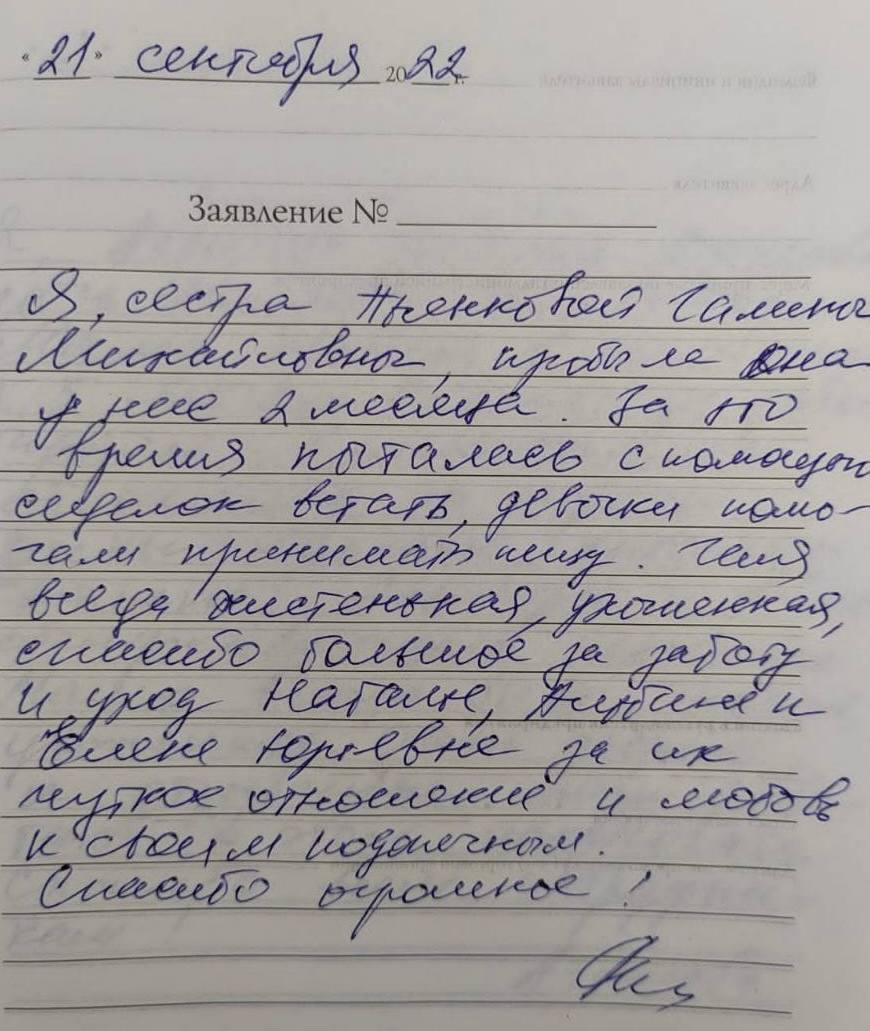 «21» сентября 2022 г.
Заявление №
Я, сестра Пьянковой Галины
Михайловны, пробыла она
у нас 2 месяца. За это
время пыталась с помощью
сиделок встать, девочки помо-
гали принимать пищу. Галя
всегда чистенькая, ухоженная,
спасибо большое за заботу
и уход Наталье, Альбине и
Елене Юрьевне за их
чуткое отношение и любовь
к своим подопечным.
Спасибо огромное!